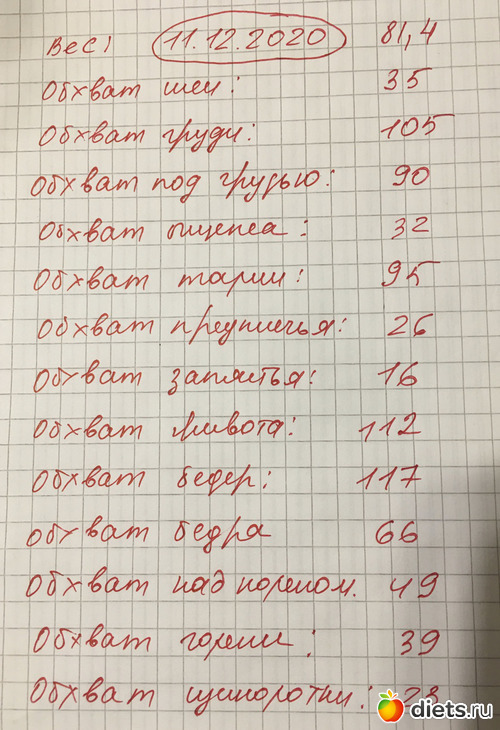 Вес: 11.12.2020 81,4
Обхват шеи: 35
Обхват груди: 105
Обхват под грудью: 90
Обхват бицепса: 32
Обхват талии: 95
Обхват предплечья: 26
Обхват запястья: 16
Обхват живота: 112
Обхват бедер: 117
Обхват бедра 66
Обхват над коленом. 49
Обхват голени: 39
Обхват щиколотки: 23
diets.ru